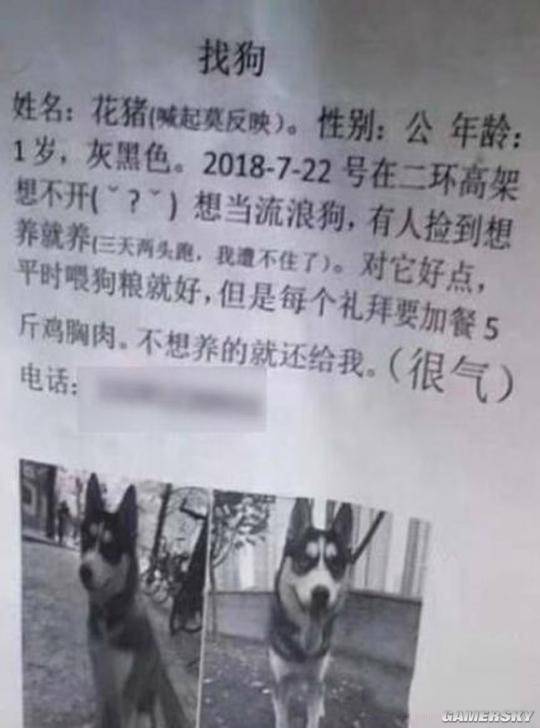 找狗
姓名：花猪(喊起莫反映)。性别：公 年龄：
1岁，灰黑色。2018-7-22 号在二环高架
想不开(ˇ？ˇ) 想当流浪狗，有人捡到想
养就养(三天两头跑，我遭不住了)。对它好点，
平时喂狗粮就好，但是每个礼拜要加餐 5
斤鸡胸肉。不想养的就还给我。（很气）
电话：
GAMERSKY